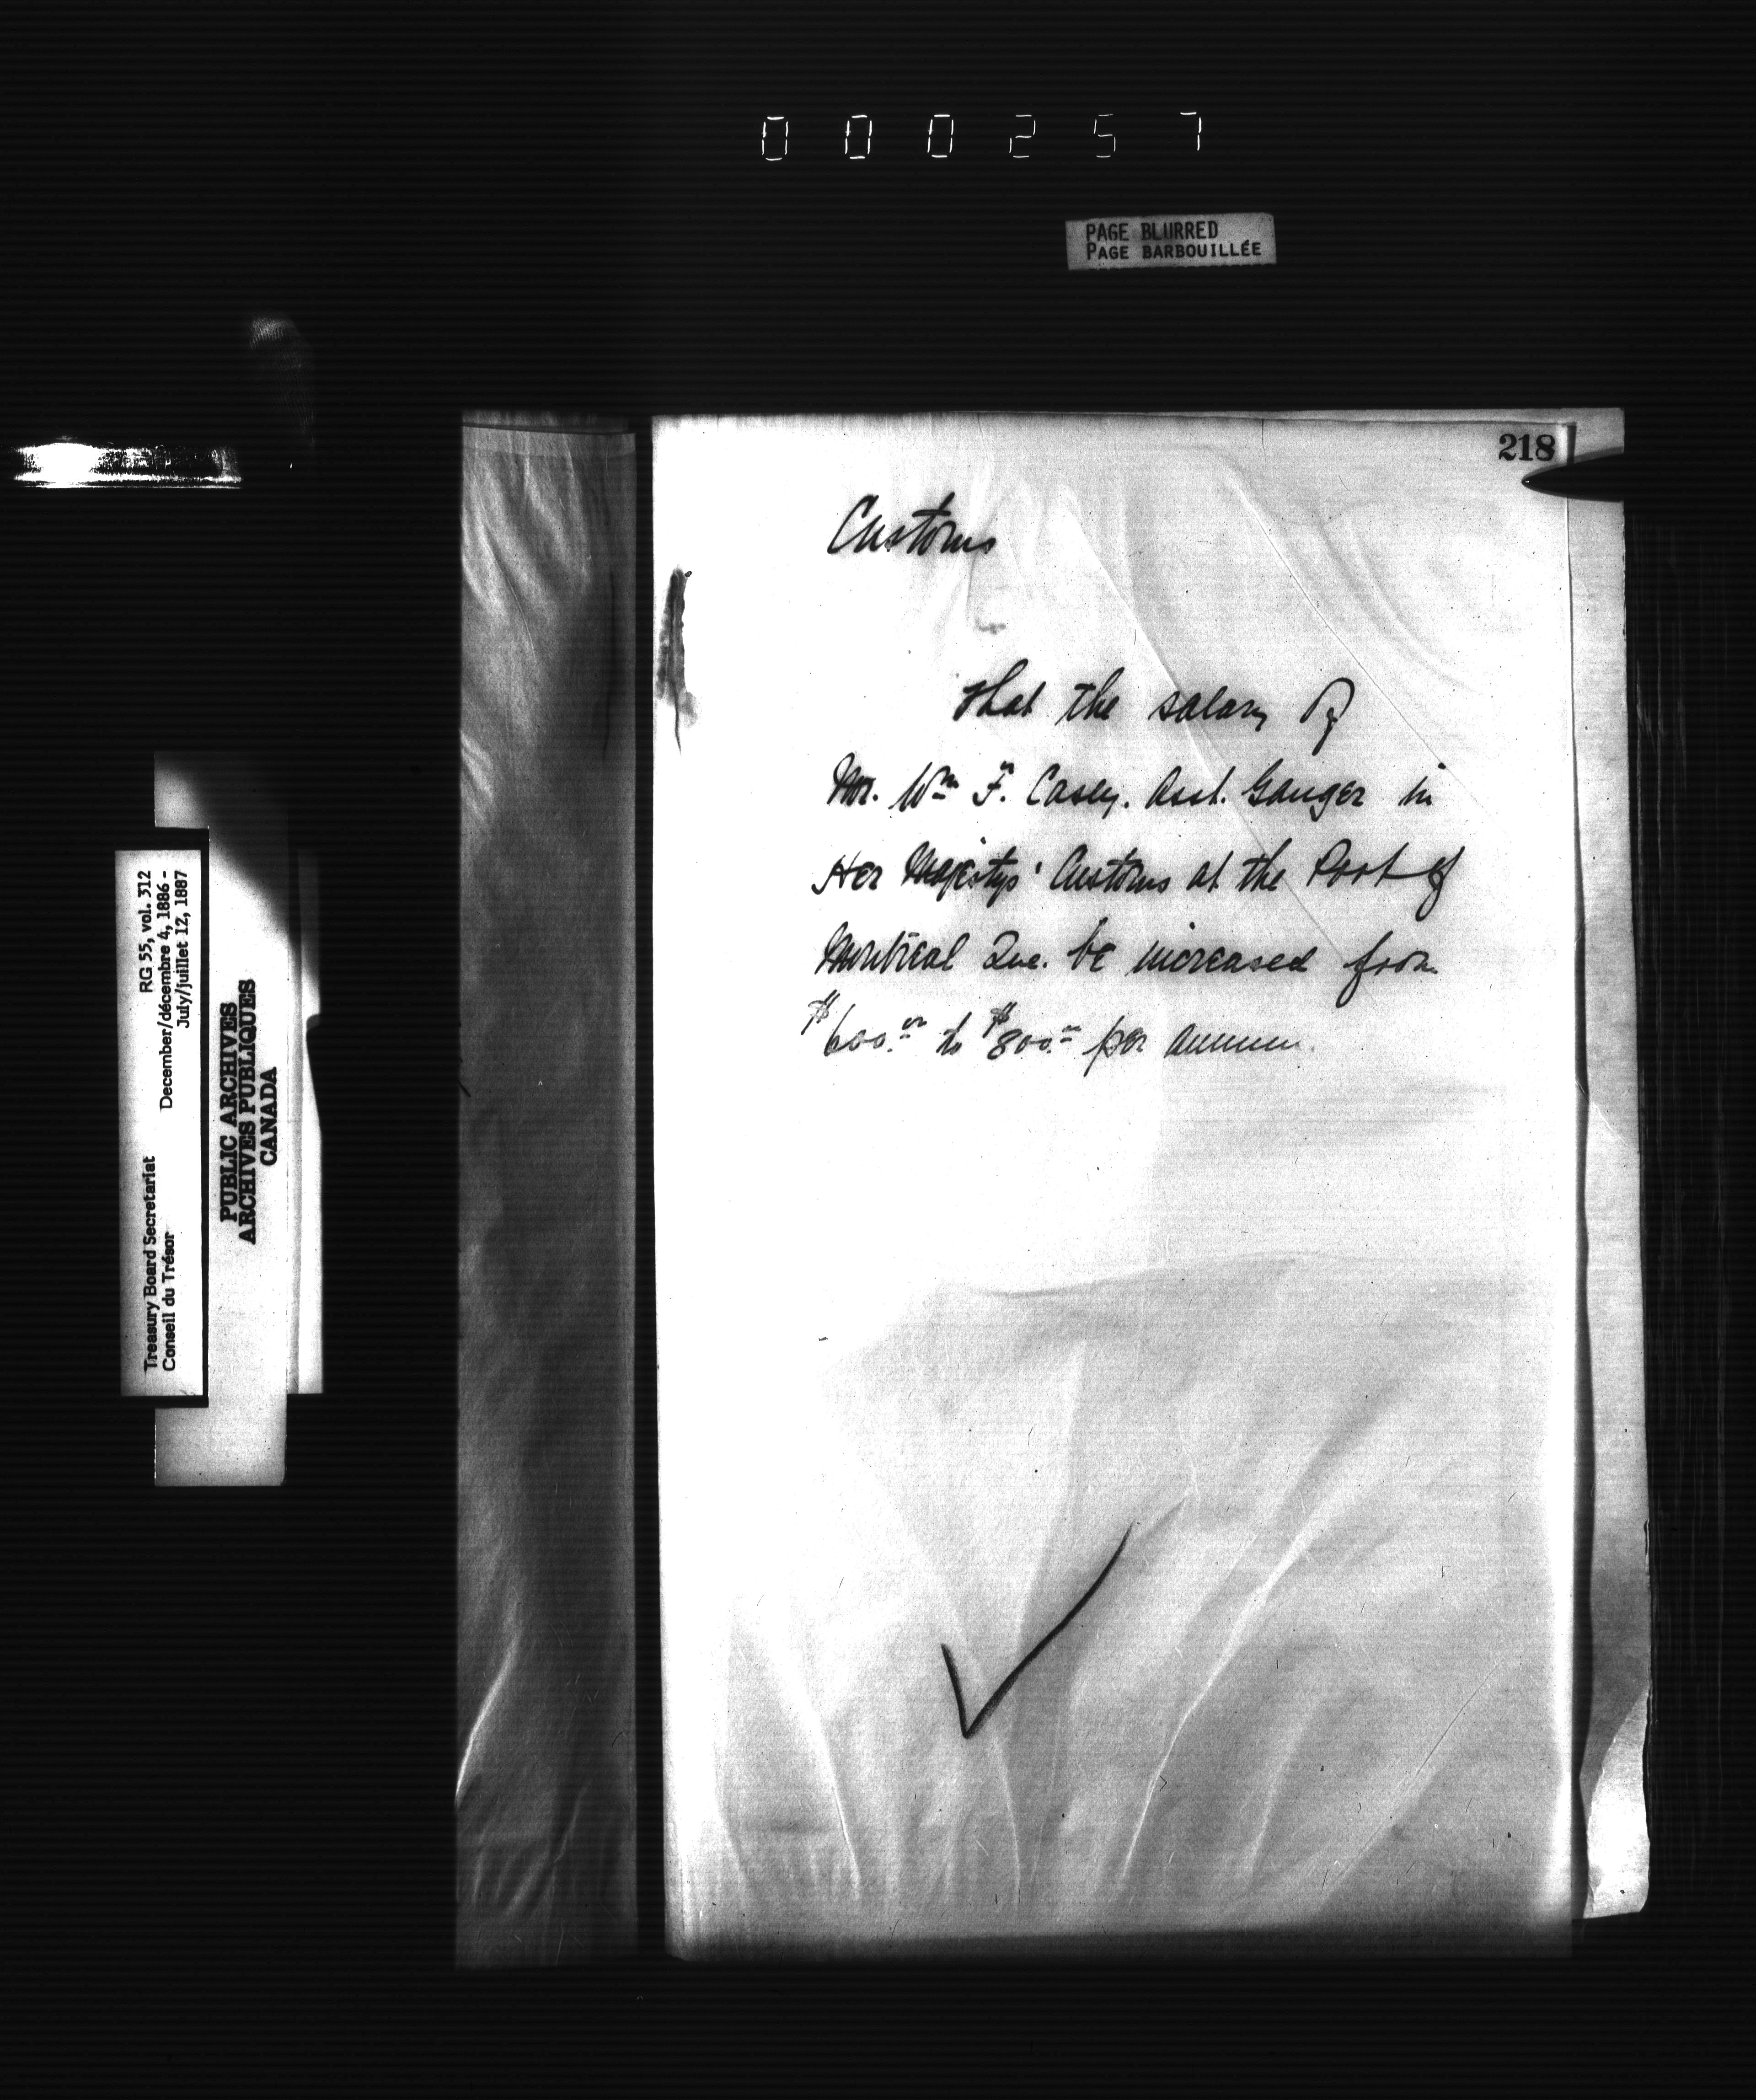 000257
PAGE BLURRED
PAGE BARBOUILLÉE
218
Customs
that the salary of
Mr. Wm F. Casey. Asst. Gauger in
Her Majestys' Customs at the Port of
Montreal Que. be increased from
$600.00 to $800.00 per annum.
Treasury Board Secretariat RG 55, vol. 312
Conseil du Trésor December/décembre 4, 1886 -
July/juillet 12, 1887
PUBLIC ARCHIVES
ARCHIVES PUBLIQUES
CANADA